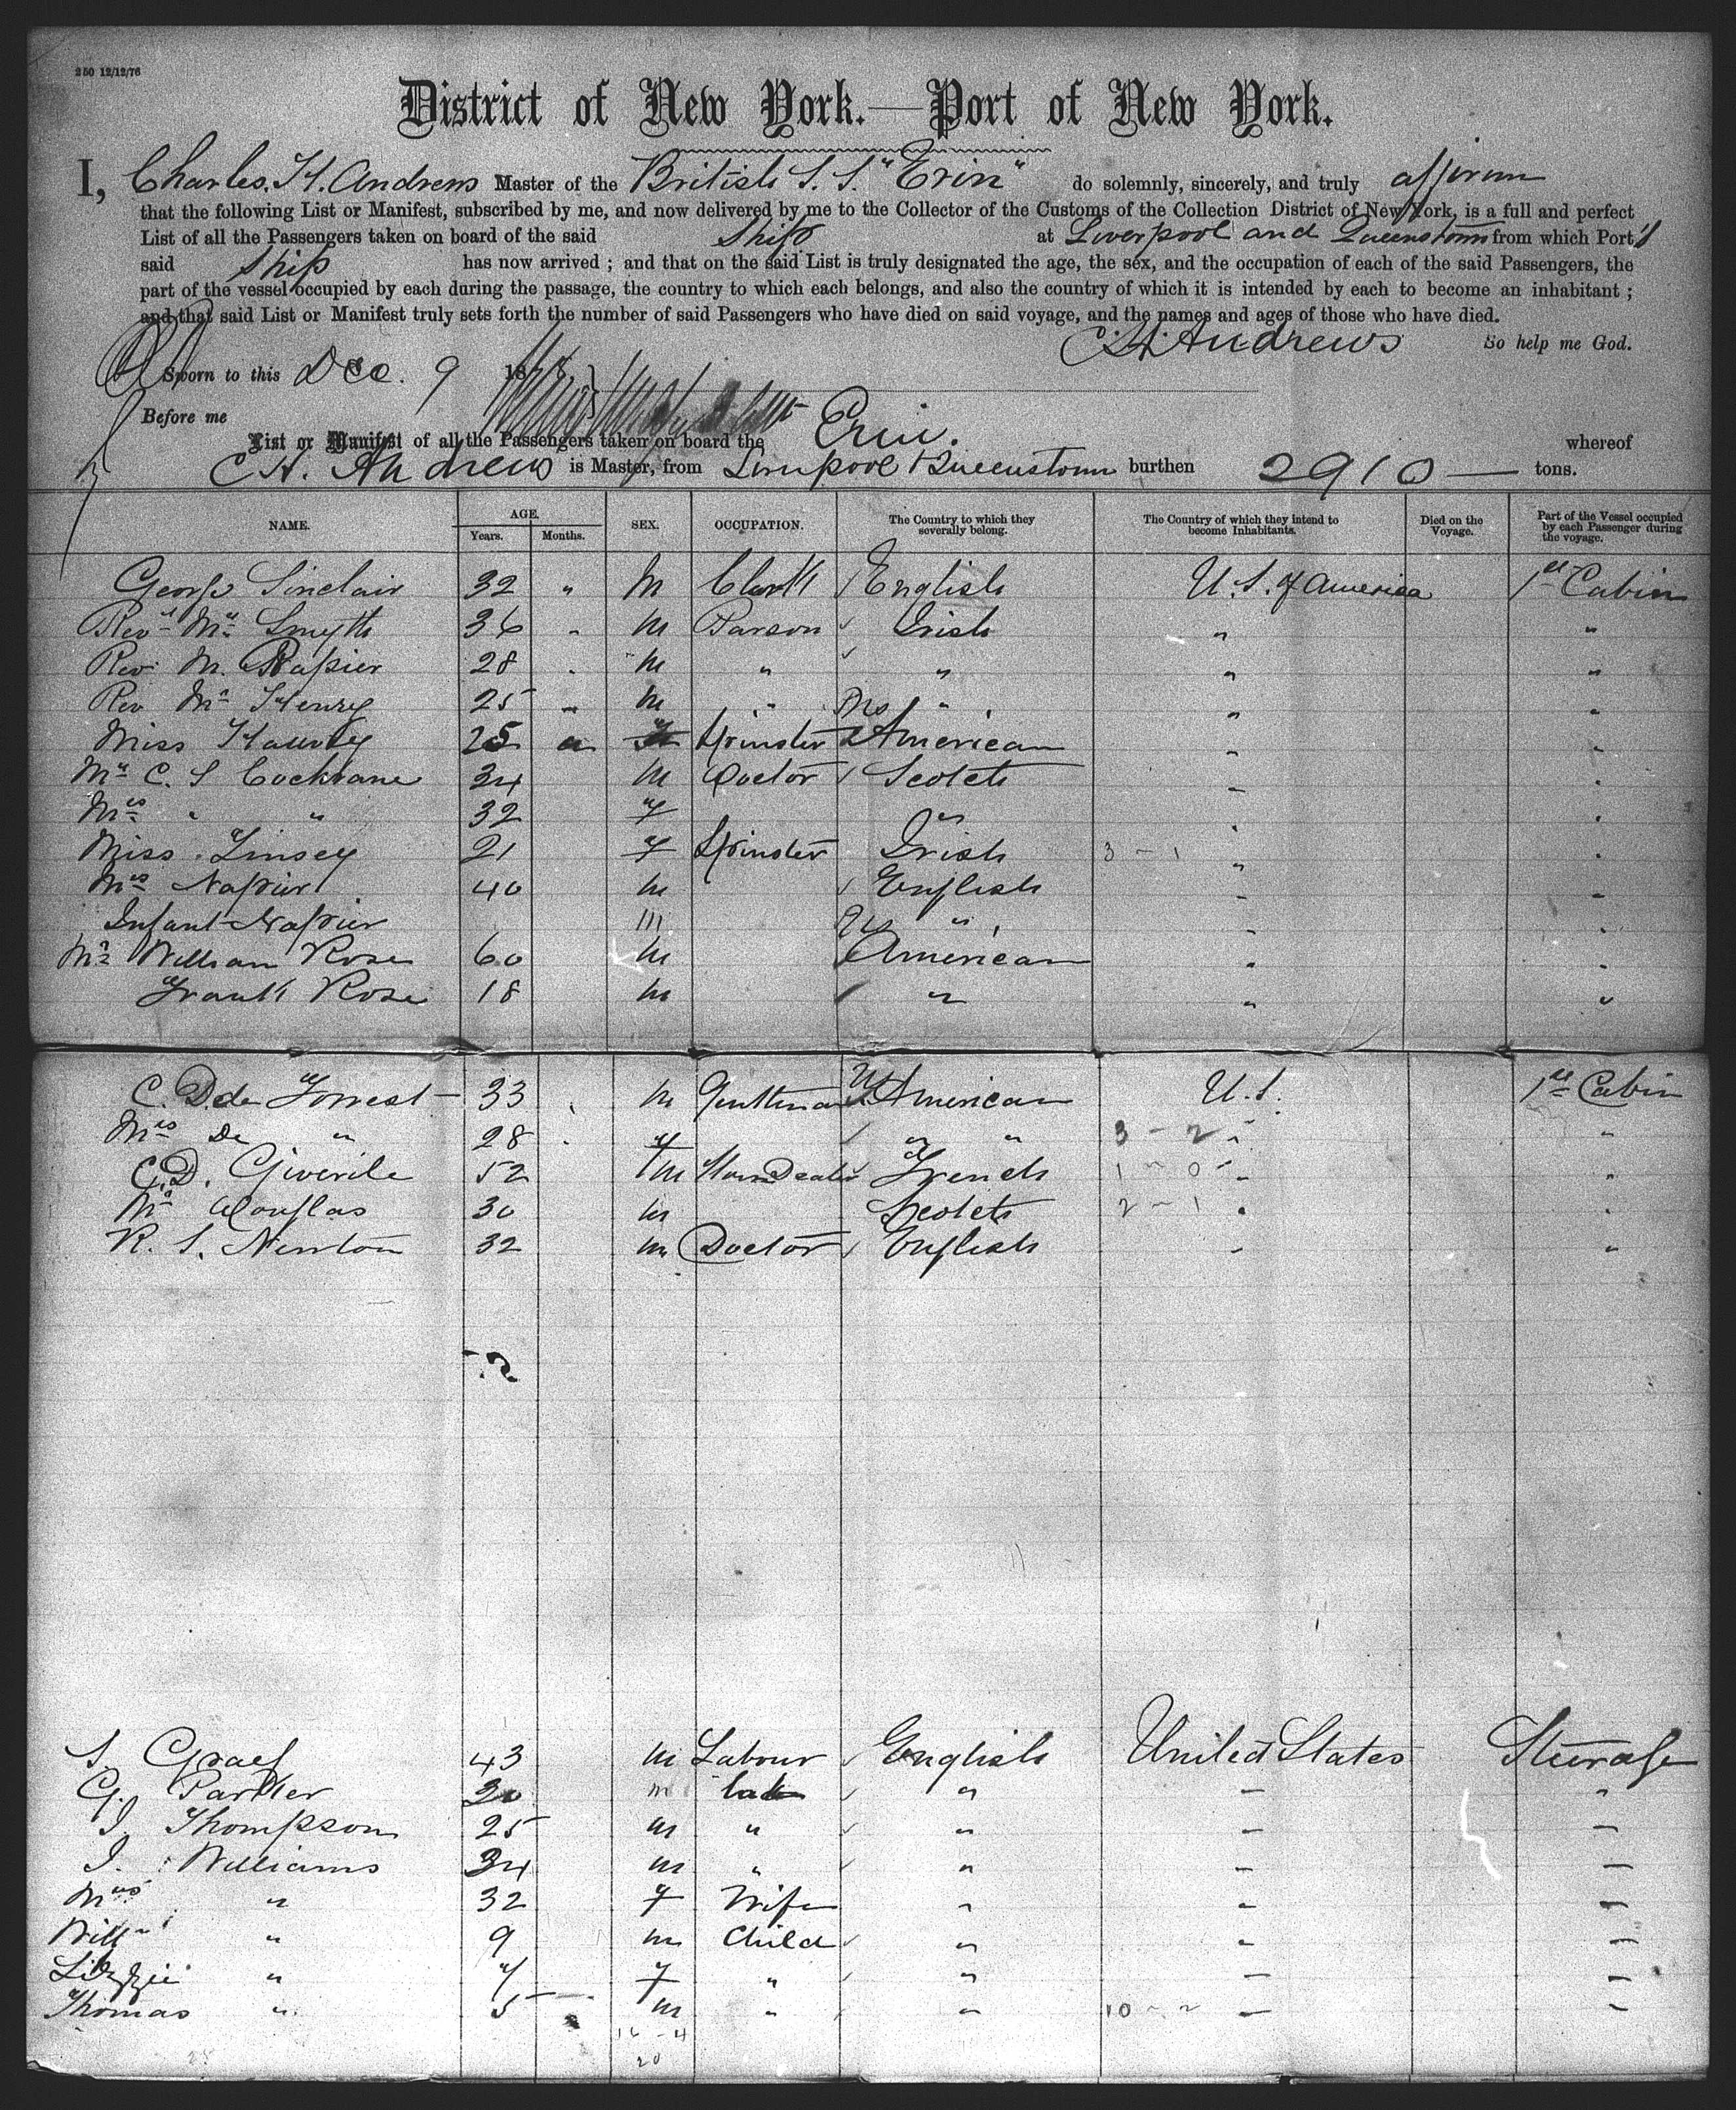 250 12/12/76
District of New York.—Port of New York.
I, Charles. H. Andrews Master of the British S. S. "Erin" do solemnly, sincerely, and truly affirm
that the following List or Manifest, subscribed by me, and now delivered by me to the Collector of the Customs of the Collection District of New York, is a full and perfect
List of all the Passengers taken on board of the said Ship at Liverpool and Queenstown from which Port's
said Ship has now arrived ; and that on the said List is truly designated the age, the sex, and the occupation of each of the said Passengers, the
part of the vessel occupied by each during the passage, the country to which each belongs, and also the country of which it is intended by each to become an inhabitant ;
and that said List or Manifest truly sets forth the number of said Passengers who have died on said voyage, and the names and ages of those who have died.
C. H. Andrews So help me God.
Sworn to this Dec. 9 187
Before me
List or Manifest of all the Passengers taken on board the Erin. whereof
C H. Andrews is Master, from Liverpool & Queenstown burthen 2910 — tons.
NAME. AGE. Years. Months. SEX. OCCUPATION. The Country to which they severally belong. The Country of which they intend to become Inhabitants. Died on the Voyage. Part of the Vessel occupied by each Passenger during the voyage.
George Sinclair 32 " M Clerk English U. S. of America 1st Cabin
Revd Mr Smyth 36 " M Parson Irish " "
Rev. M. Rapier 28 " M " " " "
Rev Mr Henry 25 " M " " " "
Miss 25 " Spinster American " "
Mr C. S Cochrane 34 M Doctor Scotch " "
Mrs " " 32 f " " "
Miss Linsey 21 f Spinster Irish 3 - 1 " "
Mrs Napier 40 M English " "
Infant Napier M " " "
Mr William Rose 60 M American " "
Frank Rose 18 M " " "
C. D. de Forrest 33 M Gentleman American U. S. 1st Cabin
Mrs De " 28 f " " 3 - 2 " "
C. D. 52 M French 1 - 0 " "
Mr Douglas 30 M Scotch 2 - 1 " "
R. S. Newton 32 M Doctor English " "
S. Graef 43 M Labour English United States Steerage
G. Parker 20 m Lab " " "
J. Thompson 25 M " " " "
J. Williams 34 M " " " "
Mrs " 32 f Wife " " "
Willm " 9 M Child " " "
Lizzie " 7 f " " " "
Thomas " 5 M " " 10 - 2 " "
16 - 4
20